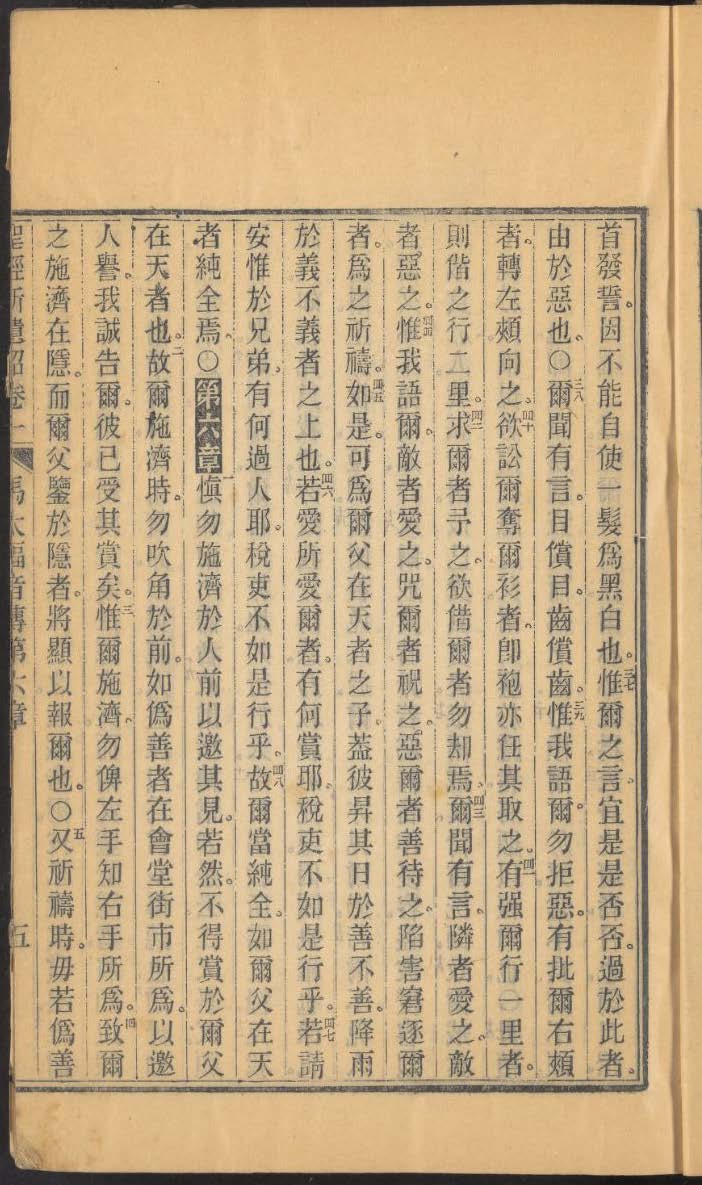 首發誓。因不能自使一髮爲黑白也。三七惟爾之言。宜是是否否。過於此者。
由於惡也。〇三八爾聞有言。目償目。齒償齒。三九惟我語爾。勿拒惡。有批爾右頰
者。轉左頰向之。四十欲訟爾奪爾衫者。卽袍亦任其取之。四一有强爾行一里者。
則偕之行二里。四二求爾者予之。欲借爾者勿却焉。四三爾聞有言。隣者愛之。敵
者惡之。四四惟我語爾。敵者愛之。咒爾者祝之。惡爾者善待之。陷害窘逐爾
者。爲之祈禱。四五如是。可爲爾父在天者之子。葢彼昇其日於善不善。降雨
於義不義者之上也。四六若愛所愛爾者。有何賞耶。稅吏不如是行乎。四七若請
安惟於兄弟。有何過人耶。稅吏不如是行乎。四八故爾當純全。如爾父在天
者純全焉。〇第六章一愼勿施濟於人前以邀其見。若然。不得賞於爾父
在天者也。二故爾施濟時。勿吹角於前。如僞善者在會堂街市所爲。以邀
人譽。我誠告爾。彼已受其賞矣。三惟爾施濟。勿俾左手知右手所爲。四致爾
之施濟在隱。而爾父鑒於隱者。將顯以報爾也。〇五又祈禱時。毋若僞善
聖經新遺詔卷一 馬太福音傳第六章 五